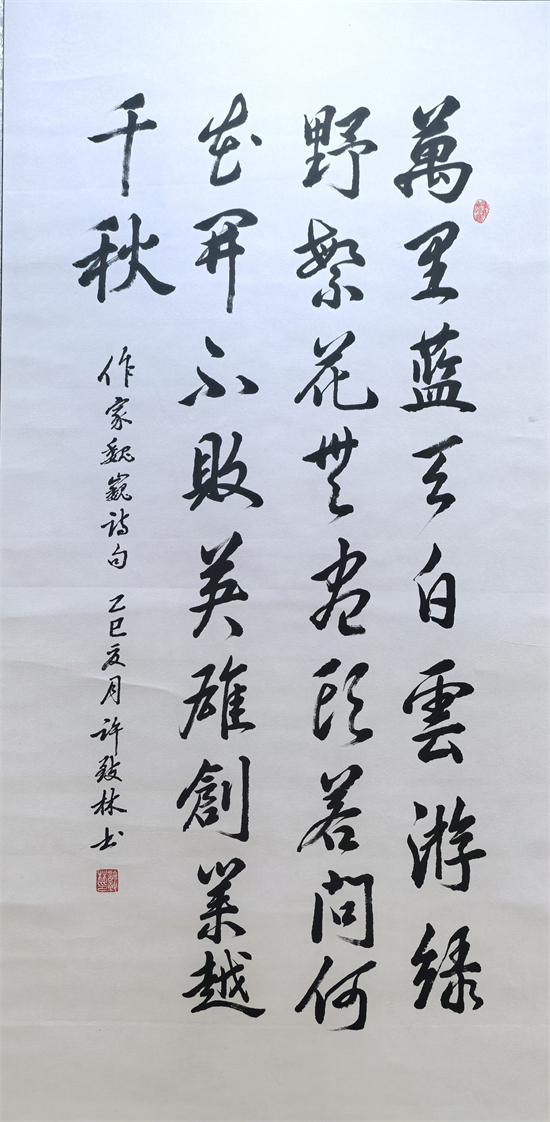 萬里藍天白雲游綠
野繁花無盡頭若問何
花開不敗英雄創業越
千秋
作家魏巍詩句 乙巳夏月 許致林書